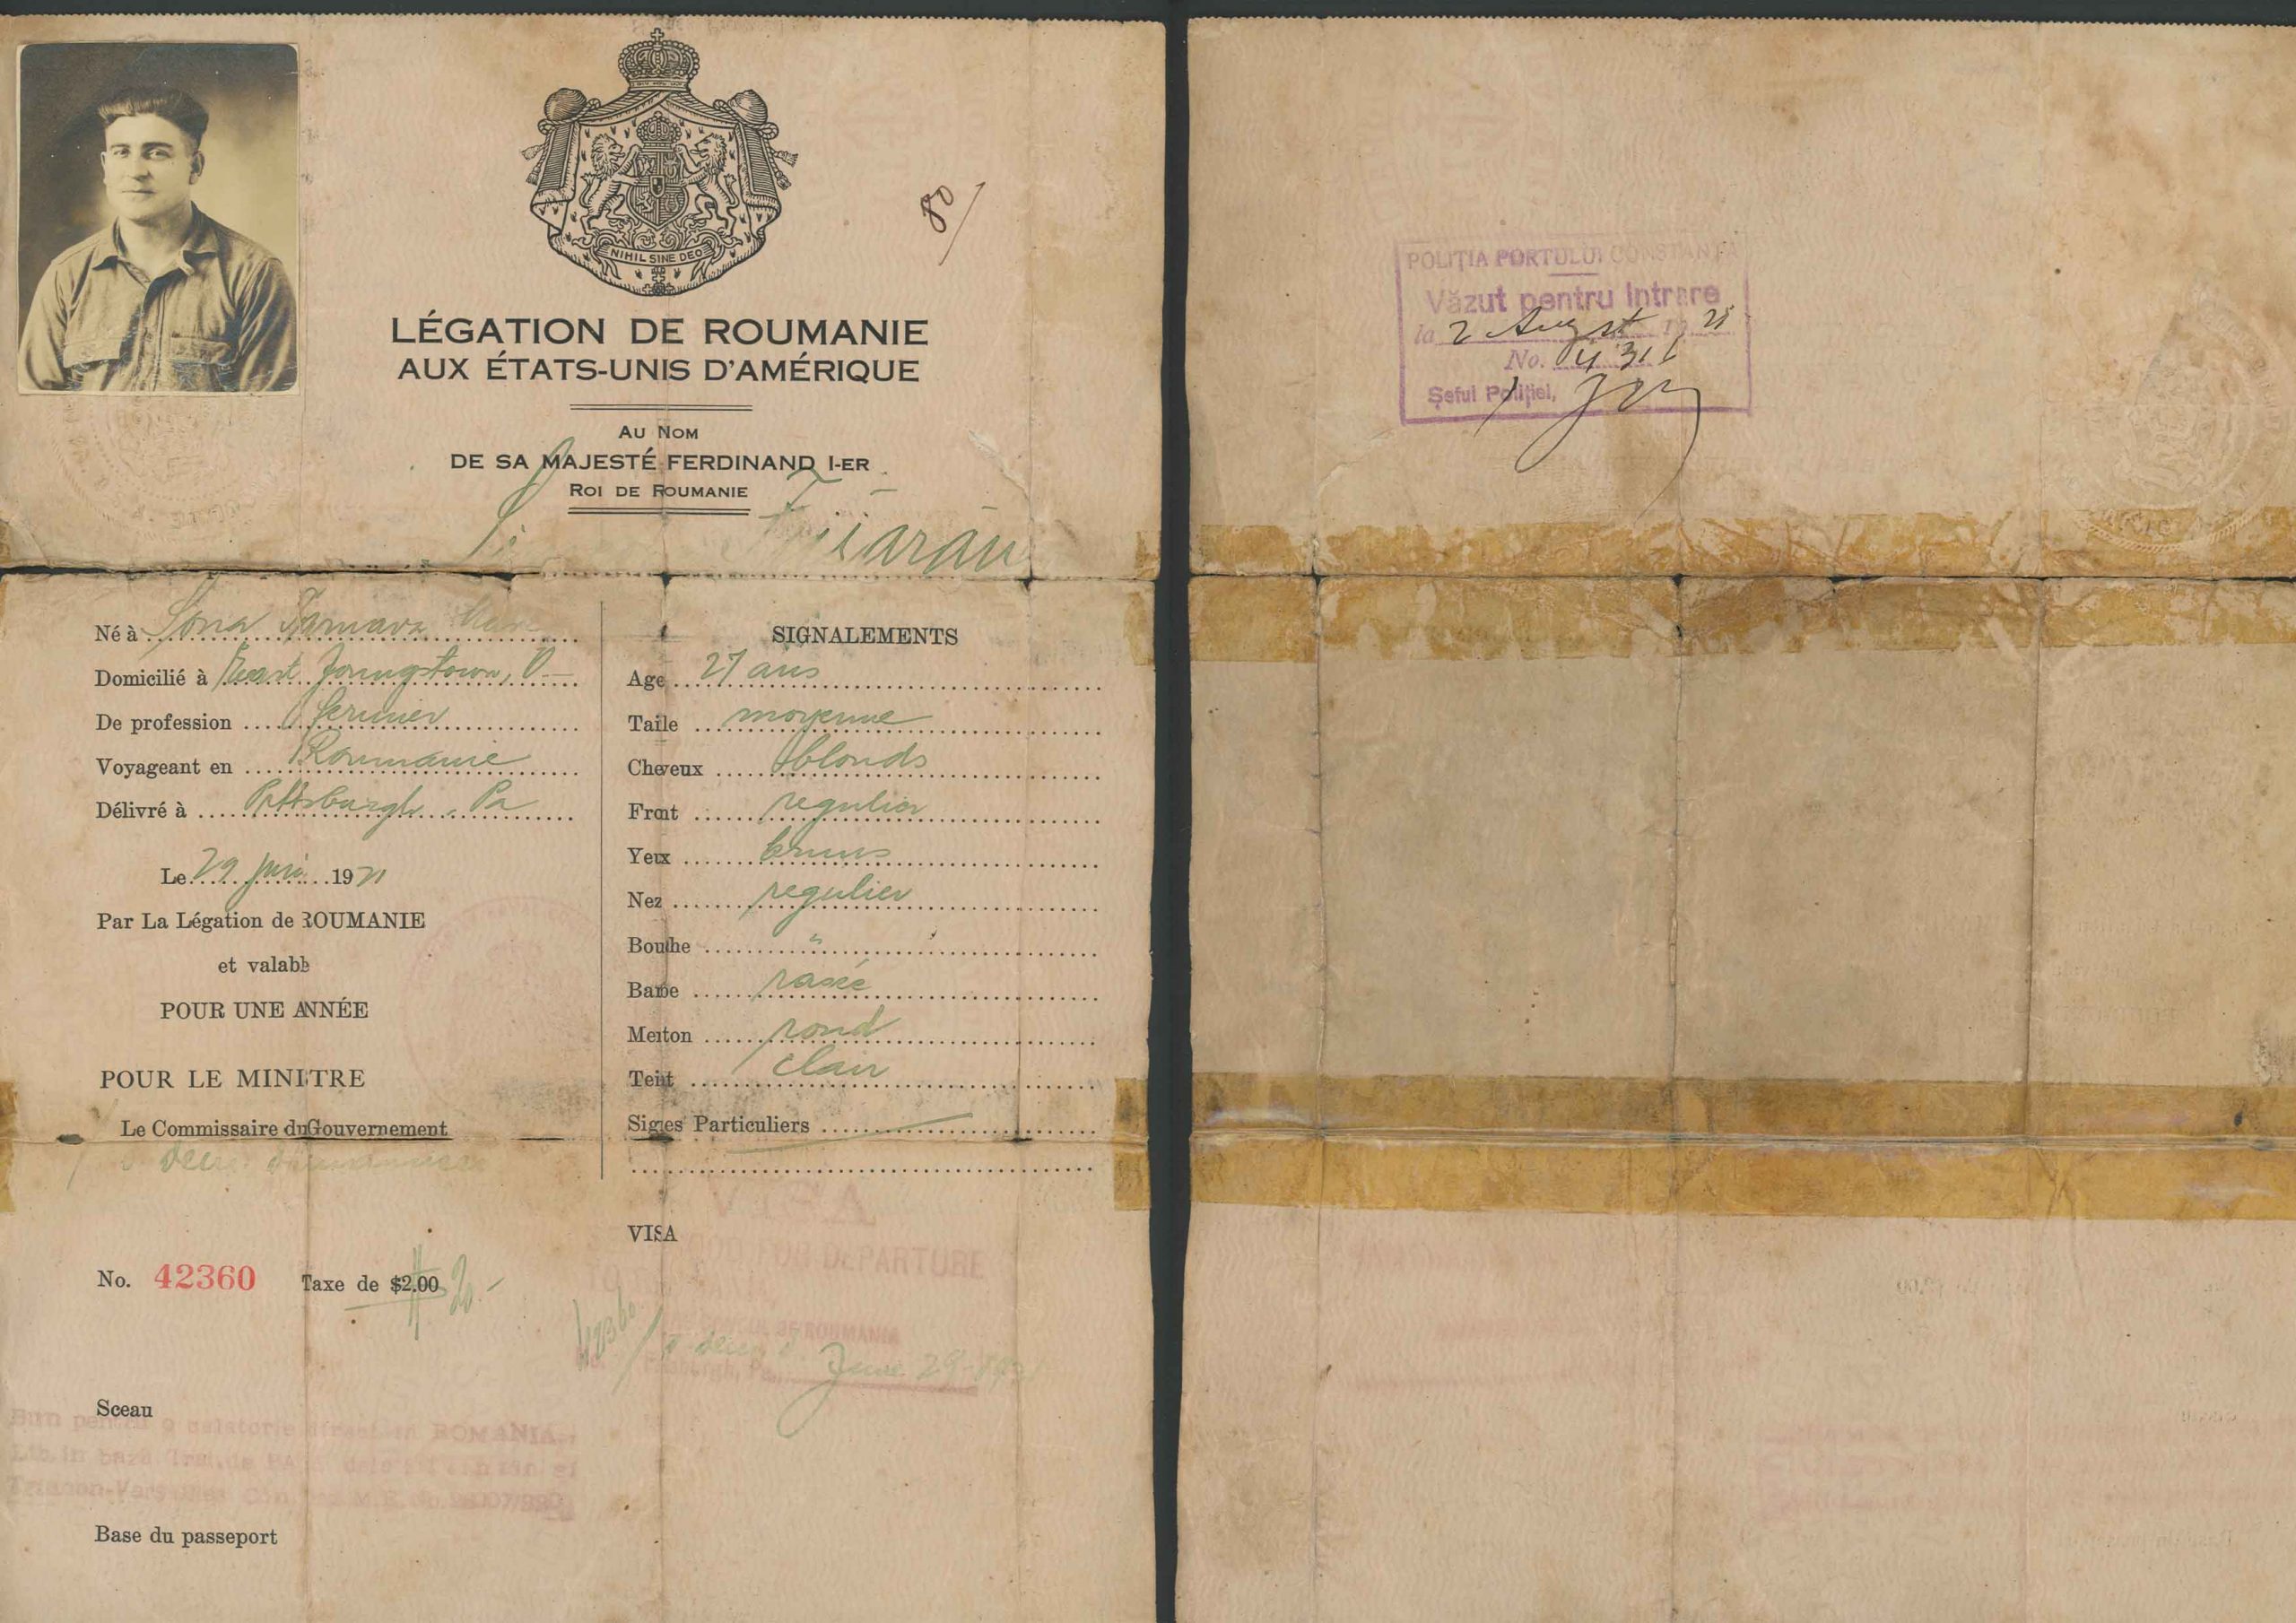 80
NIHIL SINE DEO
LÉGATION DE ROUMANIE
AUX ÉTATS-UNIS D'AMÉRIQUE
AU NOM
DE SA MAJESTÉ FERDINAND I-ER
ROI DE ROUMANIE
Né à
Domicilié à East Youngstown, O
De profession fermier
Voyageant en Roumanie
Délivré à Pittsburgh, Pa
Le 29 juin 1921
Par La Légation de ROUMANIE
et valable
POUR UNE ANNÉE
POUR LE MINISTRE
Le Commissaire du Gouvernement
No. 42360 Taxe de $2.00
Sceau
Bun pentru o calatorie direct in ROMANIA
Base du passeport
SIGNALEMENTS
Age 27 ans
Taille moyenne
Cheveux blonds
Front regulier
Yeux bruns
Nez regulier
Bouche "
Barbe rasée
Menton rond
Teint clair
Signes Particuliers
VISA
VISA
GOOD FOR DEPARTURE
CONSUL OF ROUMANIA
42360
Pittsburgh, Pa. June 29-1921
POLIȚIA PORTULUI CONSTANȚA
Văzut pentru Intrare
la 2 August 19 21
No.
Șeful Poliției,